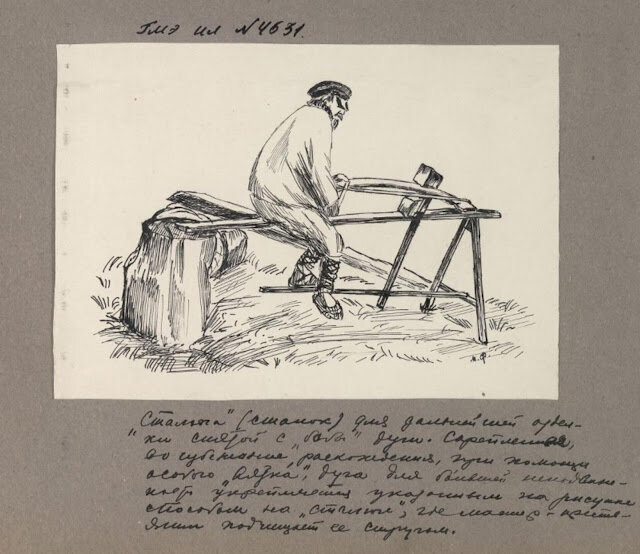 ГМЭ ил N4631.
(станок) для дальнейшей отдел-
ки снятой с дуги. Скрепленная,
во избежание расхождения, при помощи
особого "вязка", дуга для большей неподвиж-
ности укрепляется указанным на рисунке
способом на где мастер-кресть-
янин подчищает ее стругом.